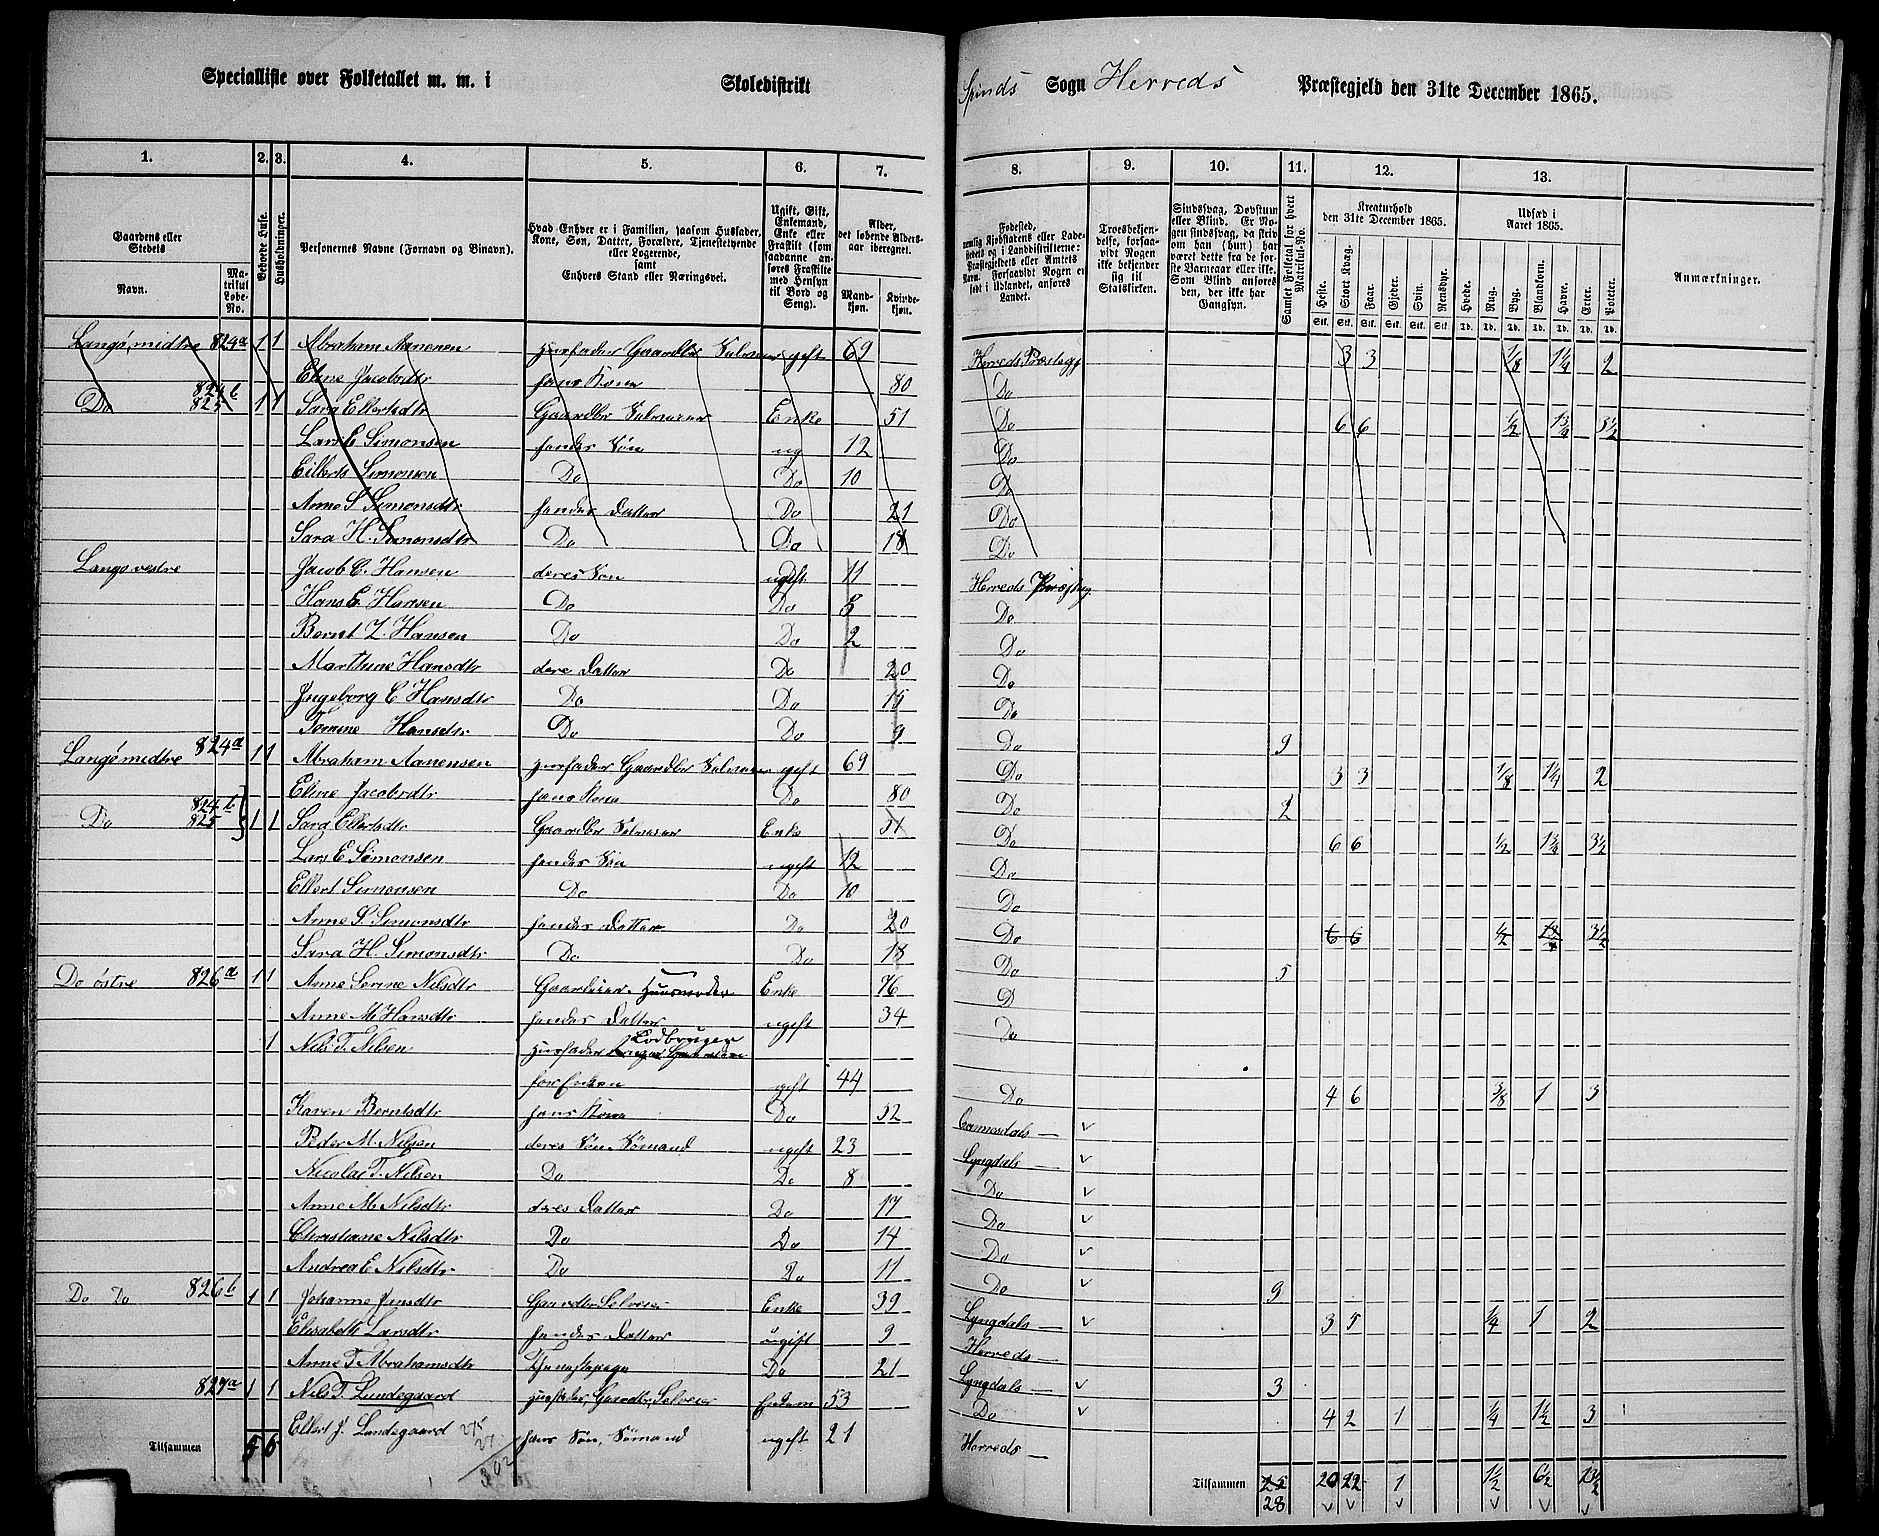 Specialliste over Folketallet m. m. i Skoledistrikt Spinds Sogn Herreds Præstegjeld den 31te December 1865.
1. 2. 3. 4. 5. 6. 7. 8. 9. 10. 11. 12. 13.
Gaardens eller Stedets
Navn.
Matrikul Løbe-No.
Beboede Huse.
Husholdninger.
Personernes Navne (Fornavn og Binavn).
Hvad Enhver er i Familien, saasom Husfader, Kone, Søn, Datter, Forældre, Tjenestetyende eller Logerende, samt Enhvers Stand eller Næringsvei.
Ugift, Gift, Enkemand, Enke eller Fraskilt (som saadanne anføres Fraskilte med Hensyn til Bord og Seng).
Alder, det løbende Aldersaar iberegnet.
Mandkjøn. Kvindekjøn.
Fødested, nemlig Kjøbstadens eller Ladestedets og i Landdistrikterne: Præstegjeldets eller Amtets Navn. Forsaavidt Nogen er født i Udlandet, anføres Landet.
Troesbekjendelse, forsaavidt Nogen ikke bekjender sig til Statskirken.
Sindssvag, Døvstum eller Blind. Er Nogen sindssvag, da skrives om han (hun) har været dette fra de første Barneaar eller ikke. Som Blind anføres den, der ikke har Gangsyn.
Samlet Folketal for hvert Matrikul-No.
Kreaturhold den 31te December 1865.
Heste. Stort Kvæg. Faar. Gjeder. Svin. Rensdyr.
Udsæd i Aaret 1865.
Hvede. Rug. Byg. Blandkorn. Havre. Erter. Poteter.
Anmærkninger.
Langø, midtre 824a 1 1 Abraham Aanensen Husfader Gaardbr Selveier gift 69 Herreds Præstegj 3 3 1/8 1 1/4 2
Eline Jacobsdtr hans Kone 80 Do
Do 824b 825 1 1 Sara Ellertsdtr Gaardbr Selveier Enke 51 Do 6 6 1/2 1 3/4 3 1/2
Lars E Simonsen hendes Søn ug 12 Do
Eilerts Simonsen Do Do 10 Do
Anne S Simonsdtr hendes Datter Do 21 Do
Sara H. Simonsdtr Do Do 18 Do
Langø vestre Jacob C. Hansen deres Søn ugift 11 Herreds Præstegj
Hans E. Hansen Do Do 8 Do
Bernt Z. Hansen Do Do 2 Do
Marthine Hansdtr deres Datter Do 20 Do
Ingeborg C Hansdtr Do Do 15 Do
Tomine Hansdtr Do Do 9 Do 9
Langø midtre 824a 1 1 Abraham Aanensen Husfader Gaardbr Selveier gift 69 Do 3 3 1/8 1 1/4 2
Eline Jacobsdtr hans Kone Do 80 Do 2
Do 824b 825 1 1 Sara Ellertsdtr Gaardbr Selveier Enke 51 Do 6 6 1/2 1 3/4 3 1/2
Lars E Simonsen hendes Søn ugift 12 Do
Ellert Simonsen Do Do 10 Do
Anne S. Simonsdtr hendes Datter Do 20 Do 6 6 1/2 1 3/4 3 1/2
Sara H. Simonsdtr Do Do 18 Do 5
Do østre 826a 1 1 Anne Serine Nilsdtr Gaardeier Huusmoder Enke 76 D
Anne M Hansdtr hendes Datter ugift 34 Do
1 Nils T. Nilsen Husfader Jordbruger
for Enken gift 44 Do 4 6 3/8 1 3
Karen Berntsdtr hans Kone Do 52
Peder M. Nilsen deres Søn Sømand ugift 23 Lyngdals —
Nicolai T. Nilsen Do Do 8 Do
Anne M. Nilsdtr deres Datter Do 17 Do
Christiane Nilsdtr Do Do 14 Do
Andrea E Nilsdtr Do Do 11 Do 9
Do Do 826b 1 1 Johanne Jensdtr Gaardbr Selveier Enke 39 Lyngdals — 3 5 1/4 1 2
Elisabeth Larsdtr hendes Datter ugift 9 Herreds —
Anne T Abrahamsdtr Tjenestepige Do 21 Lyngdals — 3
827a 1 1 Nils T. Lundegaard Husfader, Gaardbr, Selveier 53 Do 4 2 1 1/4 1 1/2 3
Ellert J. Lundegaard hans Søn, Sømand ugift 21 Herreds —
275
27
302
Tilsammen 5 6 Tilsammen 25 20 22 1 1 1/2 6 1/2 13 1/2
28